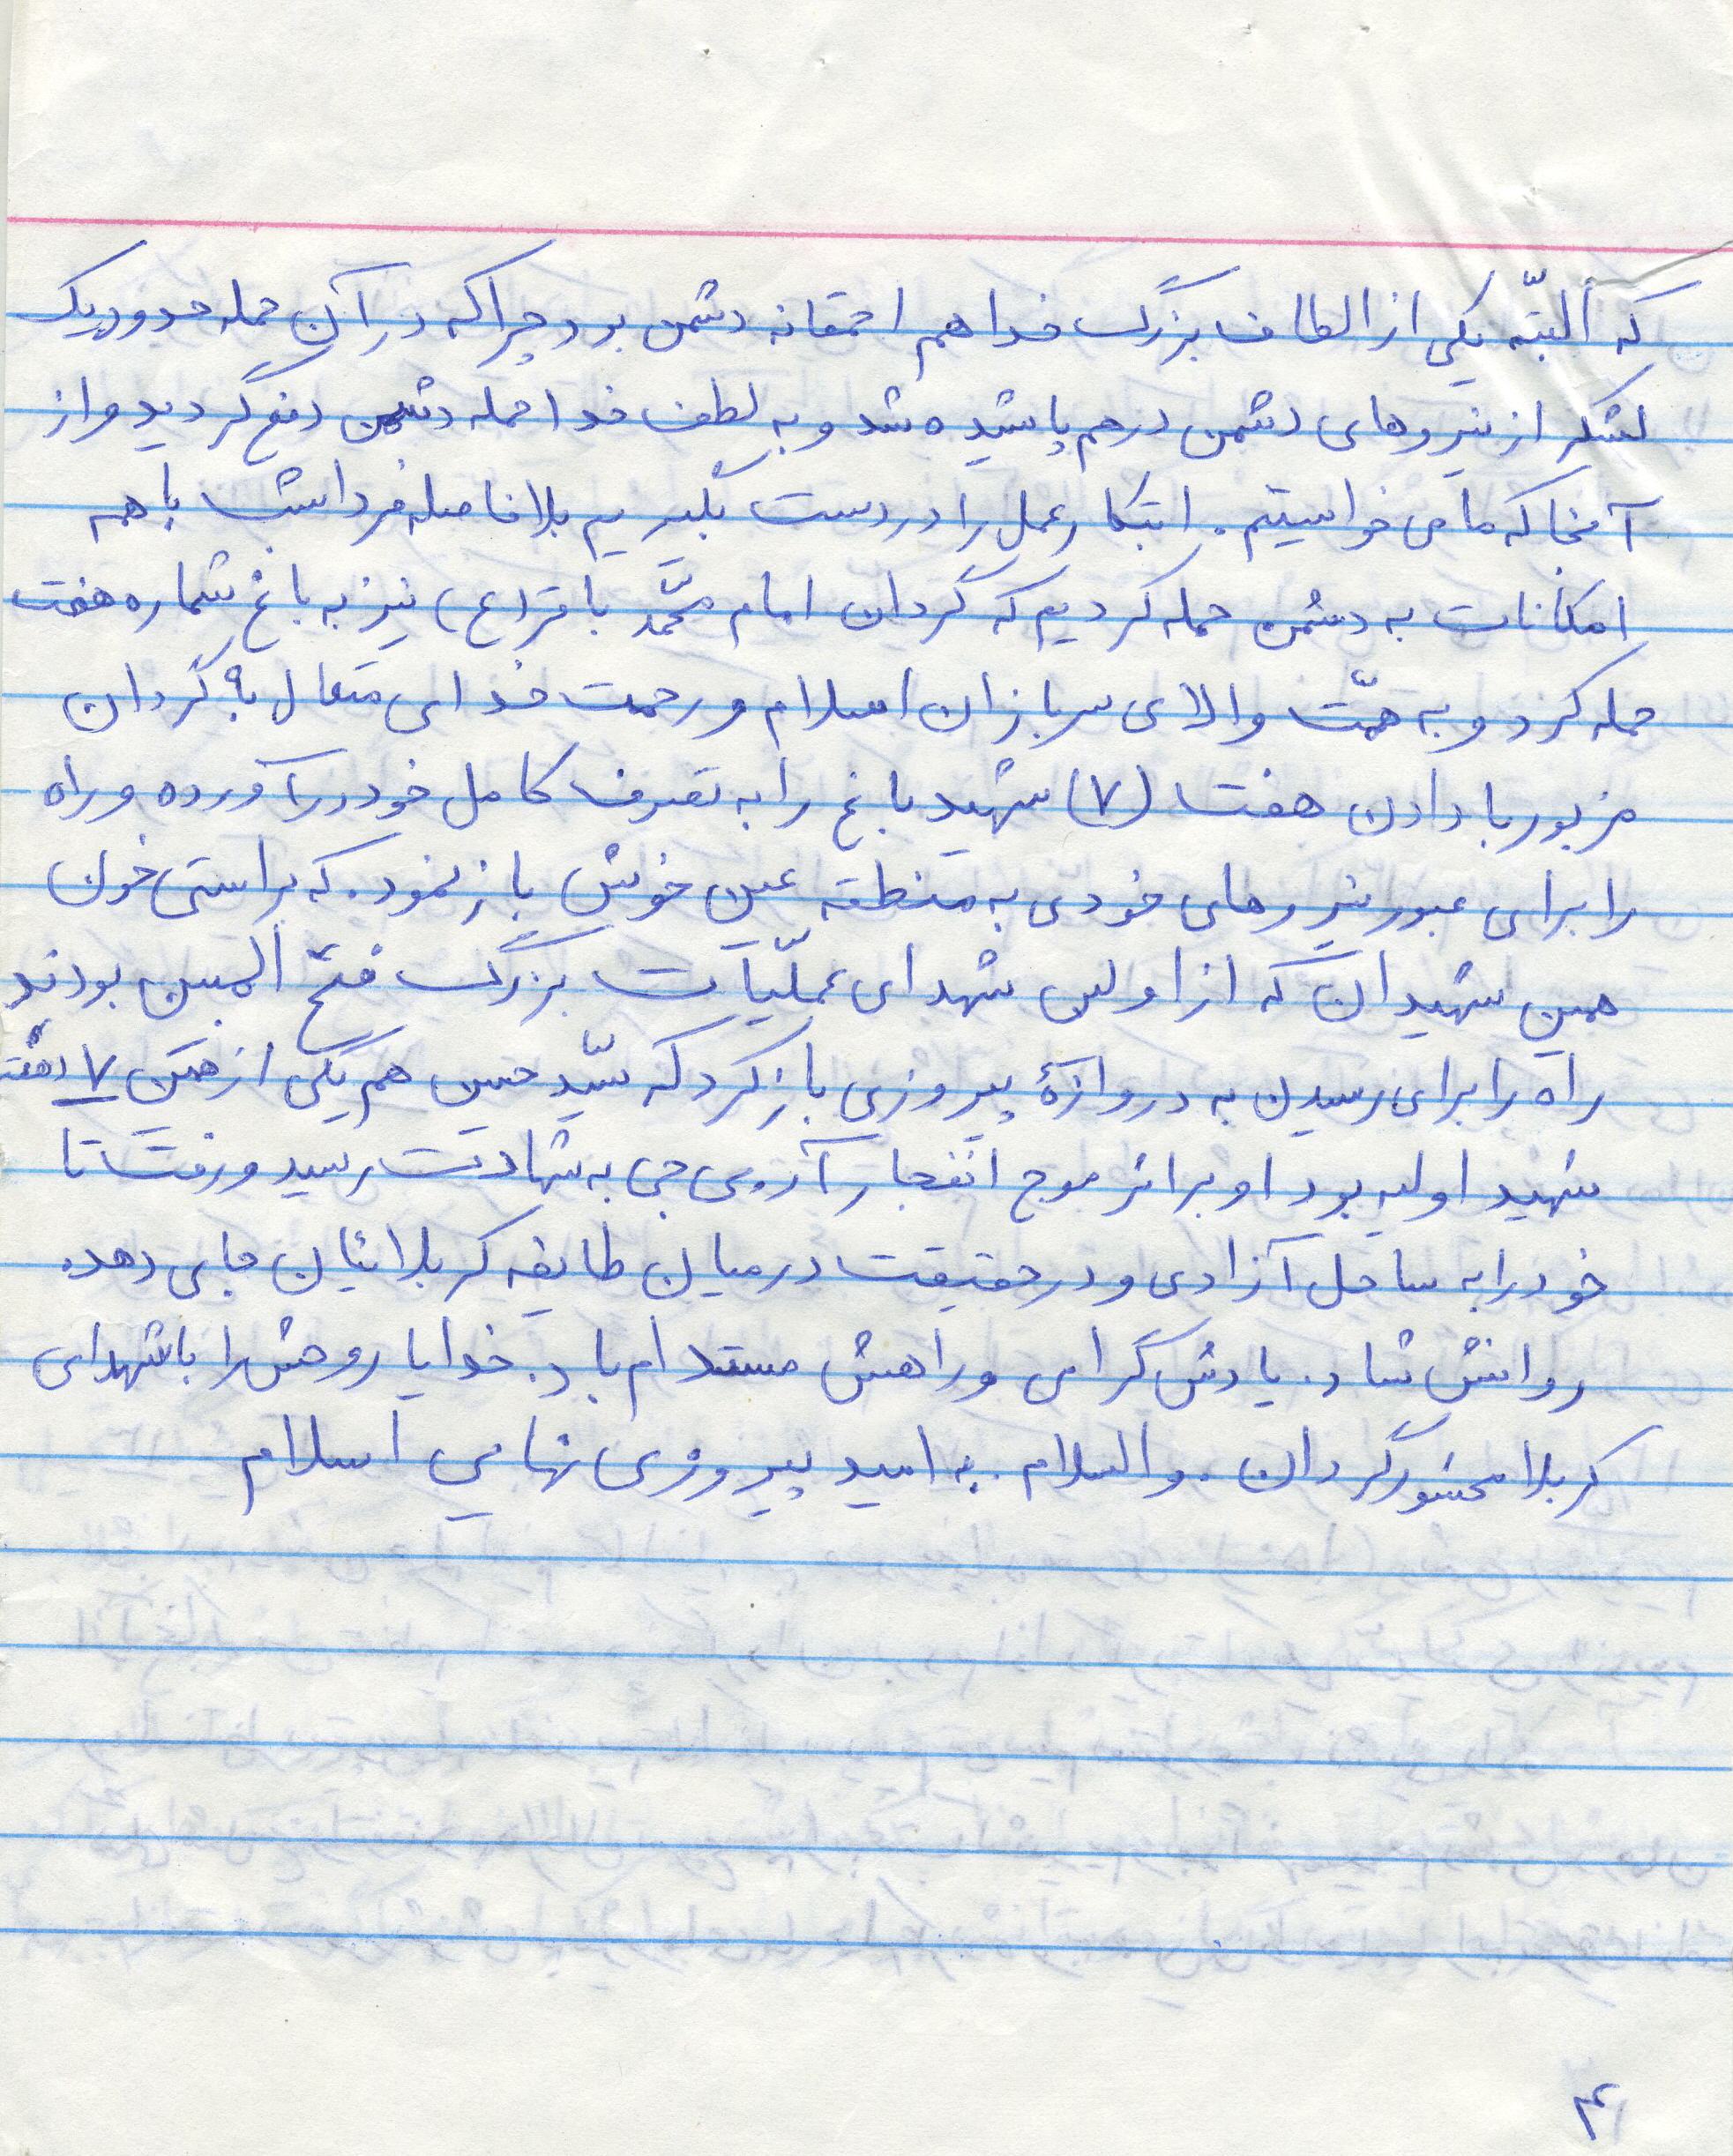 که ألبتّه یکی از الطاف بزرگ خدا هم احمقانه دشمن بود چرا که در آن حمله حدود یک
لشکر از نیروهای دشمن درهم پاشیده شد و به لطف خدا حمله دشمن دفع گردید و از
آنجا که ما می خواستیم. ابتکار عمل را در دست بگیریم بلافاصله فرداشب با همه
امکانات به دشمن حمله کردیم که گردان امام محمّد باقر(ع) نیز به باغ شماره هفت
حمله کرد و به همّت والای سربازان اسلام و رحمت خدای متعال به گردان
مزبور با دادن هفت (۷) شهید باغ را به تصرف کامل خود درآورده و راه
را برای عبور نیروهای خودی به منطقه عین خوش باز نمود. که براستی خون
همین شهیدان که از اولین شهدای عملیّات بزرگ فتح ألمبین بودند
راه را برای رسیدن به دروازهٔ پیروزی باز کرد که سیّد حسین هم یکی از همین ۷ هفت
شهید اولیه بود او بر اثر موج انفجار آر.پی جی به شهادت رسید و رفت تا
خود را به ساحل آزادی و در حقیقت در میان طایفه کربلائیان جای دهد.
روانش شاد. یادش گرامی و راهش مستدام باد. خدایا روحش را با شهدای
کربلا محشور گردان. والسلام. به امید پیروزی نهایی اسلام
۴